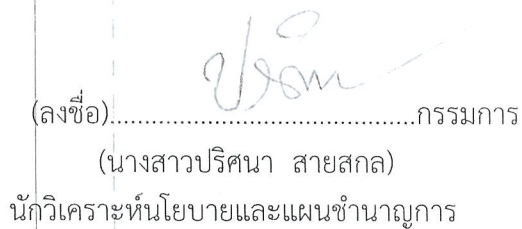 (ลงชื่อ)........................................กรรมการ
(นางสาวปริศนา สายสกล)
นักวิเคราะห์นโยบายและแผนชำนาญการ